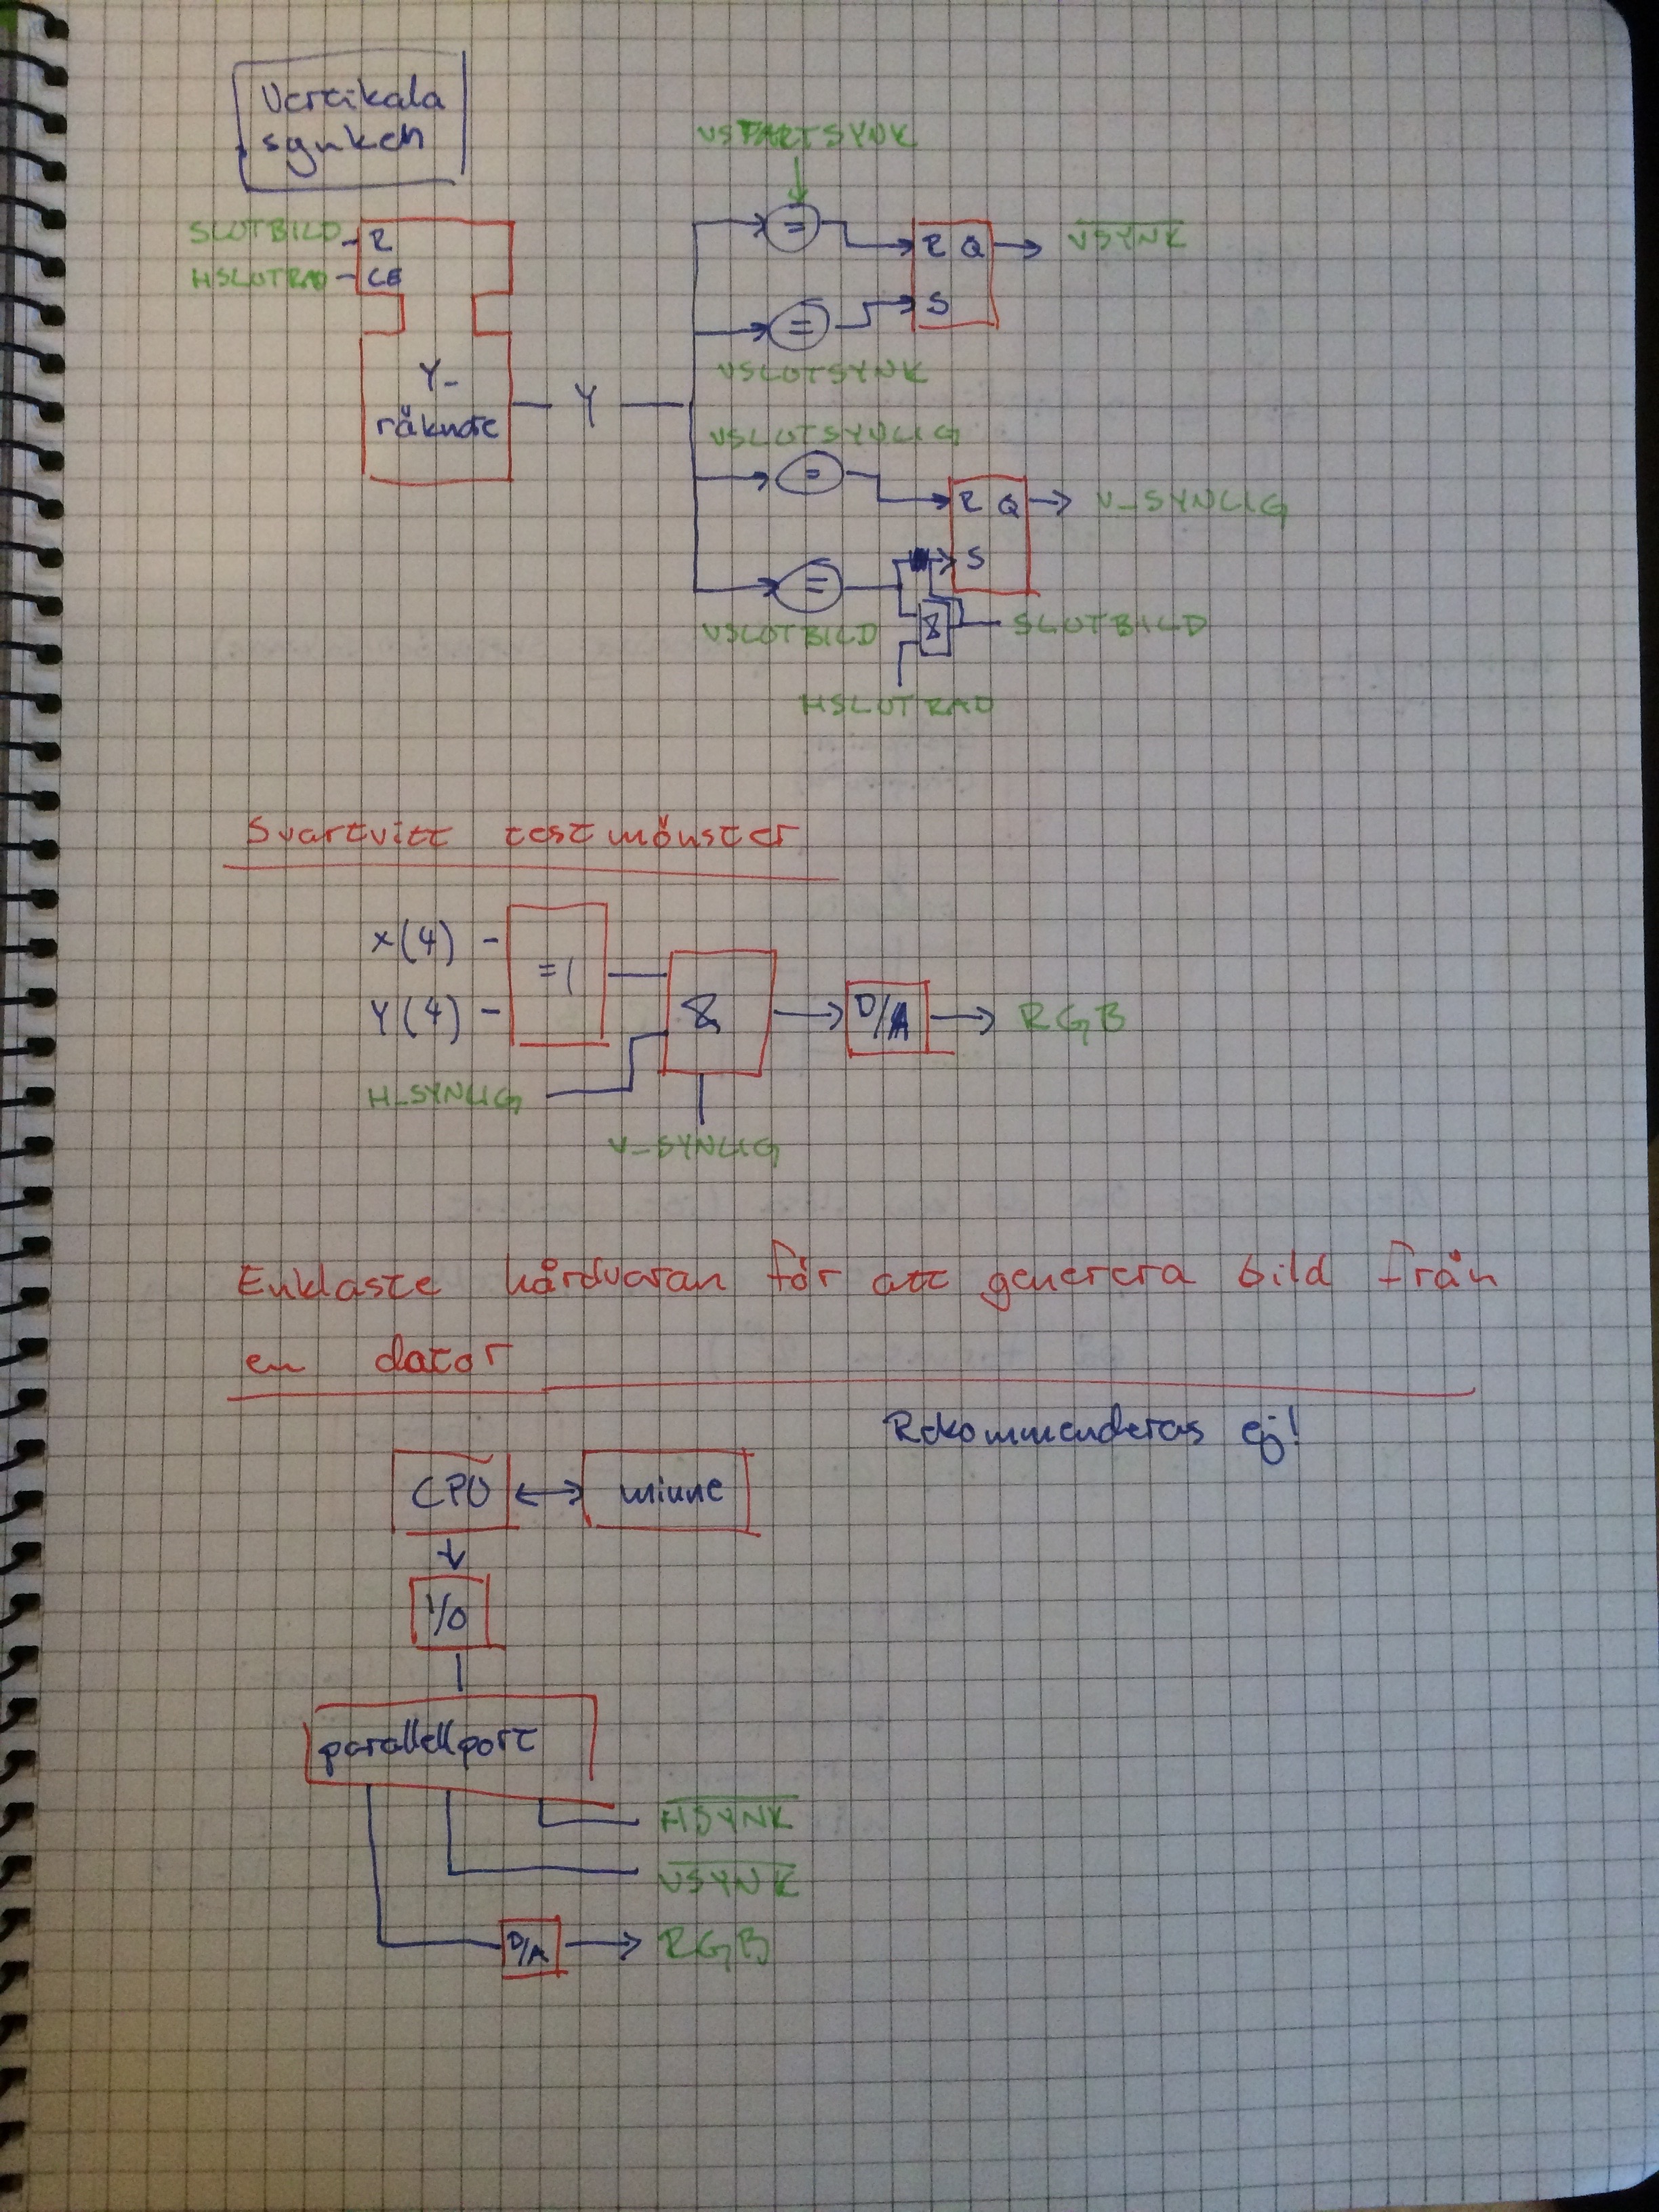 Vertikala
synken
VSTARTSYNK
SLUTBILD
R
HSLUTRAD
CE
=
R Q
VSYNK
=
S
VSLUTSYNK
Y-
räknare
Y
VSLUTSYNLIG
=
R Q
V_SYNLIG
S
=
VSLUTBILD
&
SLUTBILD
HSLUTRAD
Svartvitt testmönster
X(4)
=1
Y(4)
&
D/A
RGB
H_SYNLIG
V_SYNLIG
Enklaste hårdvaran för att generera bild från
en dator
Rekommenderas ej!
CPU
minne
I/O
parallellport
HSYNK
VSYNK
D/A
RGB